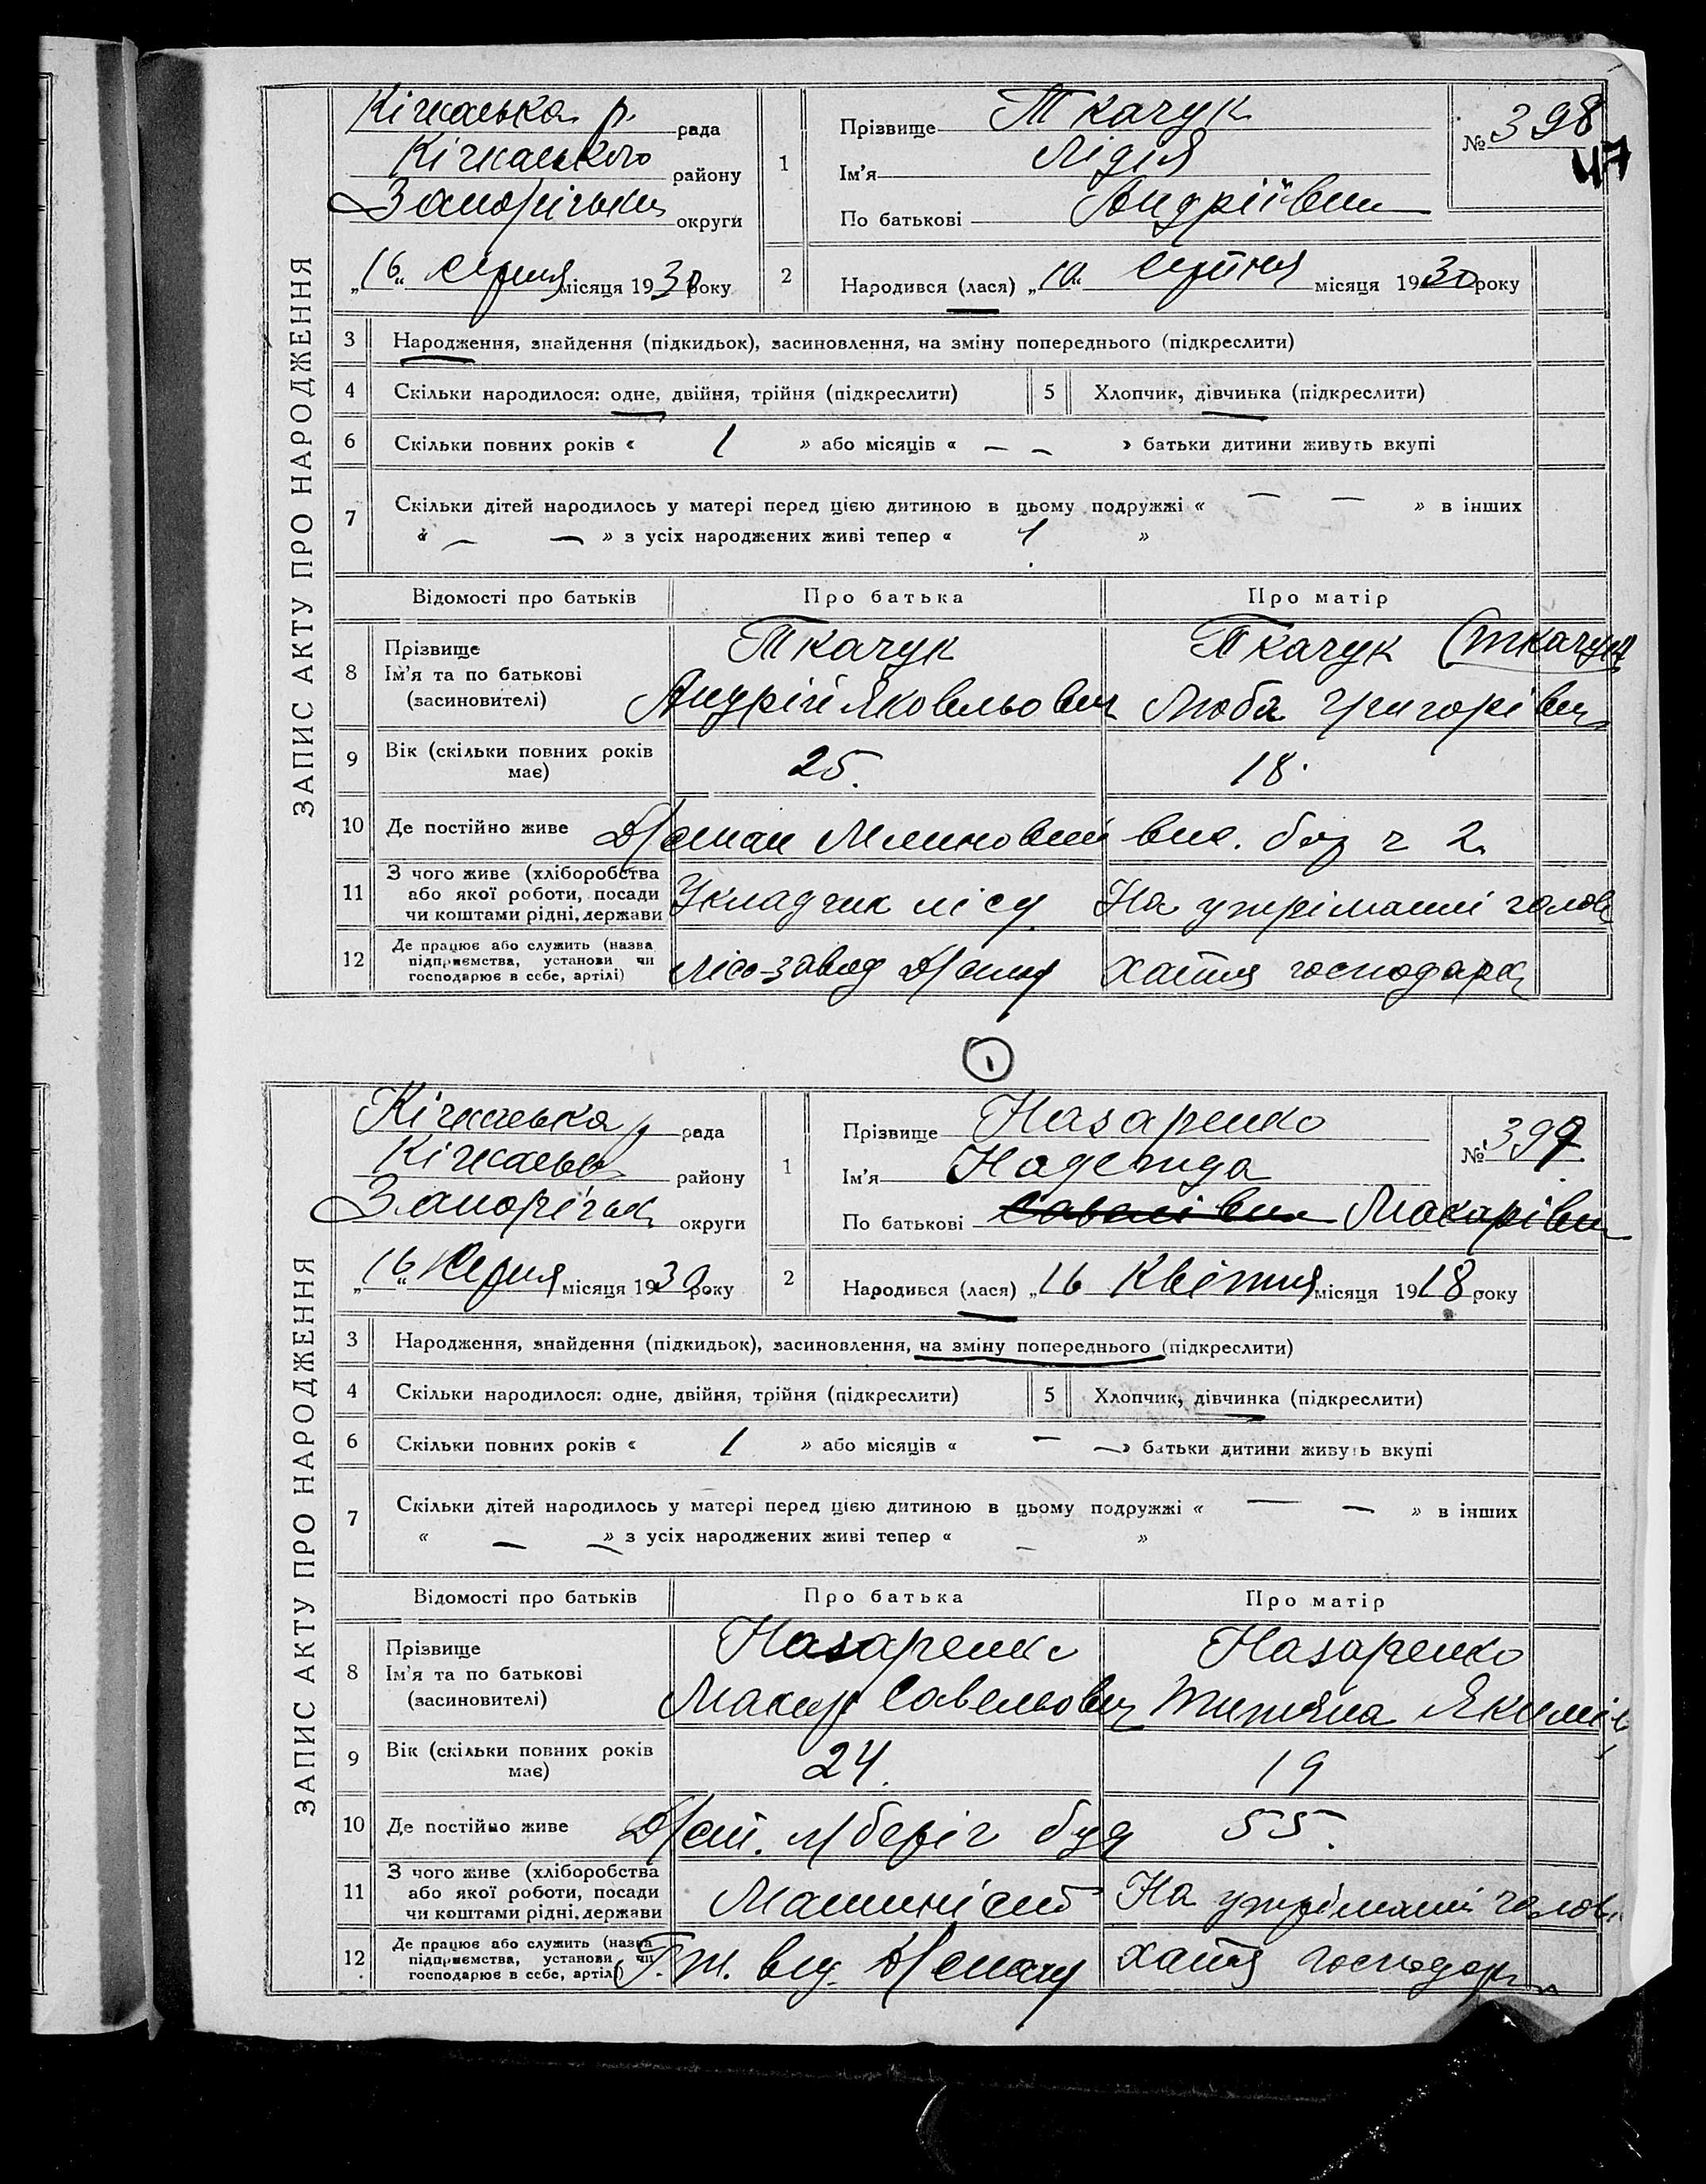 ЗАПИС АКТУ ПРО НАРОДЖЕННЯ
Кічкаська р. рада
Кічкаського району
Запорізьки округи
„16“ серпня місяця 1930 року
1 Прізвище Ткачук
Ім'я Лідія
По батькові Андріївна
№ 398
47
2 Народився (лася) „10“ серпня місяця 1930 року
3 Народження, знайдення (підкидьок), засиновлення, на зміну попереднього (підкреслити)
4 Скільки народилося: одне, двійня, трійня (підкреслити) 5 Хлопчик, дівчинка (підкреслити)
6 Скільки повних років « 1 » або місяців « — — » батьки дитини живуть вкупі
7 Скільки дітей народилось у матері перед цією дитиною в цьому подружжі « — — » в інших
« — — » з усіх народжених живі тепер « 1 »
Відомості про батьків Про батька Про матір
8 Прізвище Ткачук Ткачук (Ткачук)
Ім'я та по батькові Андрій Яковльович Люба Григорівна
(засиновителі)
9 Вік (скільки повних років має) 25. 18.
10 Де постійно живе вис. 2
11 З чого живе (хліборобства
або якої роботи, посади Укладчик лісу На утріманні чолов
чи коштами рідні, держави
12 Де працює або служить (назва
підприємства, установи чи Лісо-завод хатня господарк
господарює в себе, артілі)
1
ЗАПИС АКТУ ПРО НАРОДЖЕННЯ
Кічкаська р рада
Кічкаськ району
Запорізьк округи
„16“ Серпня місяця 1930 року
1 Прізвище Назаренко
Ім'я Надежда
По батькові Савелівна Макарівна
№ 399
2 Народився (лася) „16 Квітня місяця 1918 року
3 Народження, знайдення (підкидьок), засиновлення, на зміну попереднього (підкреслити)
4 Скільки народилося: одне, двійня, трійня (підкреслити) 5 Хлопчик, дівчинка (підкреслити)
6 Скільки повних років « 1 » або місяців « — —» батьки дитини живуть вкупі
7 Скільки дітей народилось у матері перед цією дитиною в цьому подружжі « — — » в інших
« — — » з усіх народжених живі тепер « — »
Відомості про батьків Про батька Про матір
8 Прізвище Назаренко Назаренко
Ім'я та по батькові Макар Савельович Титяна Якимів
(засиновителі)
9 Вік (скільки повних років має) 24. 19
10 Де постійно живе л/беріг буд 55.
11 З чого живе (хліборобства
або якої роботи, посади Машиніст На утріманні чолов
чи коштами рідні, держави
12 Де працює або служить (назва
підприємства, установи чи від. хатня господарк
господарює в себе, артілі)